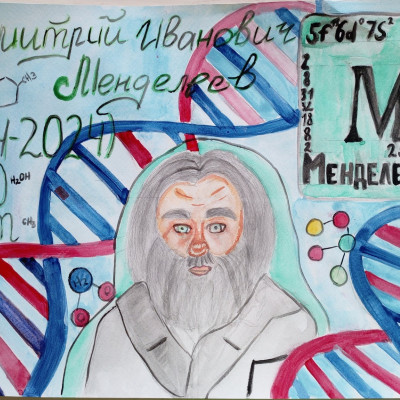 митрий Иванович
Менделеев
-2024)
CH₃
H₂OH
CH₃
H₂
5f¹⁴6d⁰7s²
2
8
31
32
18
8
2
М
Менделе